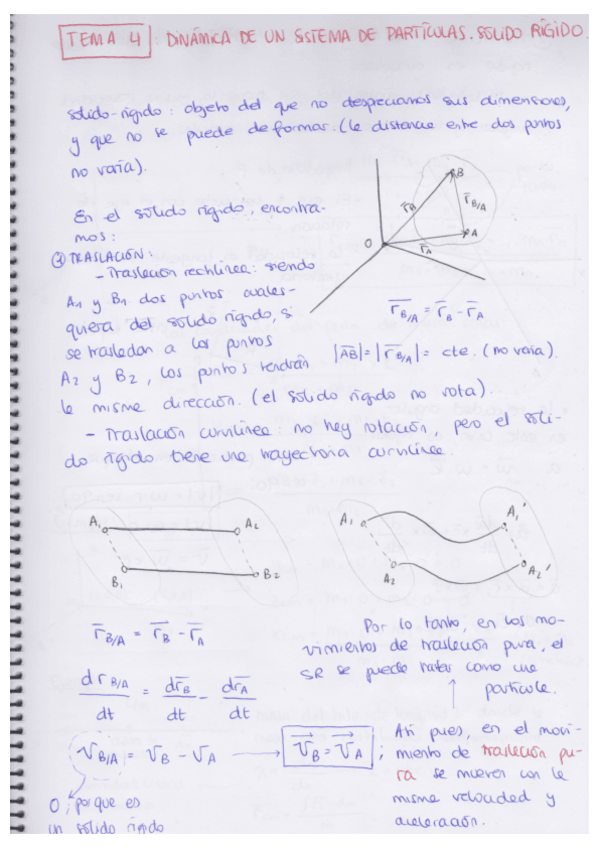 TEMA 4 : DINÁMICA DE UN SISTEMA DE PARTÍCULAS. SOLIDO RÍGIDO.
sólido-rígido: objeto del que no despreciamos sus dimensiones,
y que no se puede deformar. (la distancia entre dos puntos
no varía).
En el sólido rígido, encontra-
mos:
TRASLACIÓN:
- Traslación rectilínea: siendo
A1 y B1 dos puntos cuales-
quiera del sólido rígido, si
se trasladan a los puntos
A2 y B2, los puntos tendrán
la misma dirección. (el sólido rígido no rota).
O
B
A
r̄B
r̄A
r̄B/A
r̄B/A = r̄B - r̄A
|AB| = |r̄B/A| = cte. (no varía).
- Traslación curvilínea: no hay rotación, pero el sóli-
do rígido tiene una trayectoria curvilínea.
A1 A2
B1 B2
A1 A1'
A2 A2'
r̄B/A = r̄B - r̄A
drB/A/dt = dr̄B/dt - dr̄A/dt
vB/A = vB - vA → v⃗B = v⃗A ;
0, porque es
un sólido rígido
Por lo tanto, en los mo-
vimientos de traslación pura, el
SR se puede tratar como una
partícula.
Así pues, en el movi-
miento de traslación pu-
ra se mueven con la
misma velocidad y
aceleración.